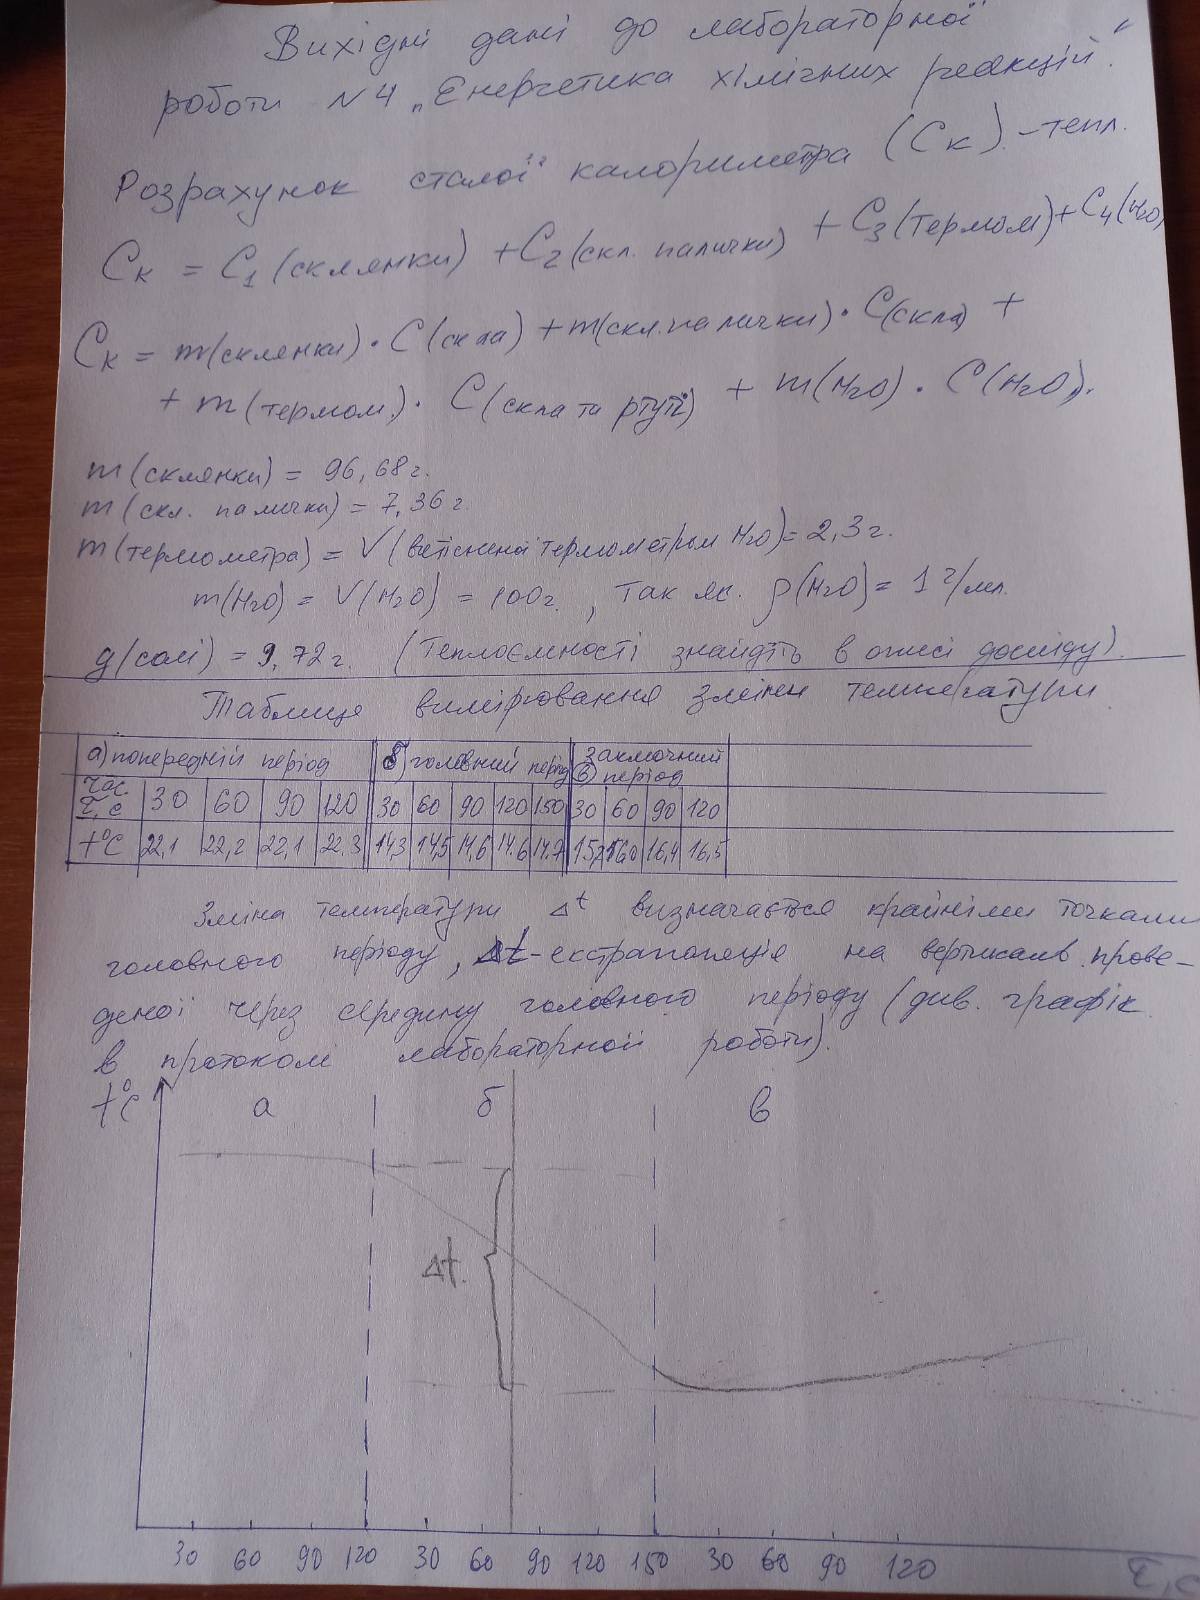 Вихідні дані до лабораторної
роботи №4 „Енергетика хімічних реакцій".
Розрахунок сталої калориметра (Cк) - тепл.
Cк = C1 (склянки) + C2 (скл. палички) + C3 (термом) + C4 (H2O)
Cк = m(склянки) · C(скла) + m(скл. палички) · C(скла) +
+ m(термом.) · C(скла та ртуті) + m(H2O) · C(H2O).
m(склянки) = 96,68 г.
m(скл. палички) = 7,36 г.
m(термометра) = V(витісненої термометром H2O) = 2,3 г.
m(H2O) = V(H2O) = 100 г. , так як. ρ(H2O) = 1 г/мл.
g(солі) = 9,72 г. (Теплоємності знайдіть в описі досліду).
Таблиця вимірювання зміни температури
а) попередній період б) головний період заключний
в) період
Час τ, с 30 60 90 120 30 60 90 120 150 30 60 90 120
t°C 22,1 22,2 22,1 22,3 14,3 14,5 14,6 14.6 14.7 16,0 16,4 16,5
Зміна температури Δt визначається крайніми точками
головного періоду, Δt - екстраполяція на вертикаль прове-
деної через середину головного періоду (див. графік
в протоколі лабораторної роботи).
t°C а б в
Δt.
30 60 90 120 30 60 90 120 150 30 60 90 120 τ, с